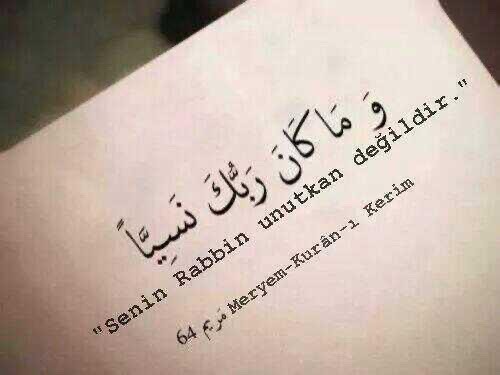 وَ مَا كَانَ رَبُّكَ نَسِيًّا
"Senin Rabbin unutkan değildir."
64 مَريم Meryem-Kurân-ı Kerim